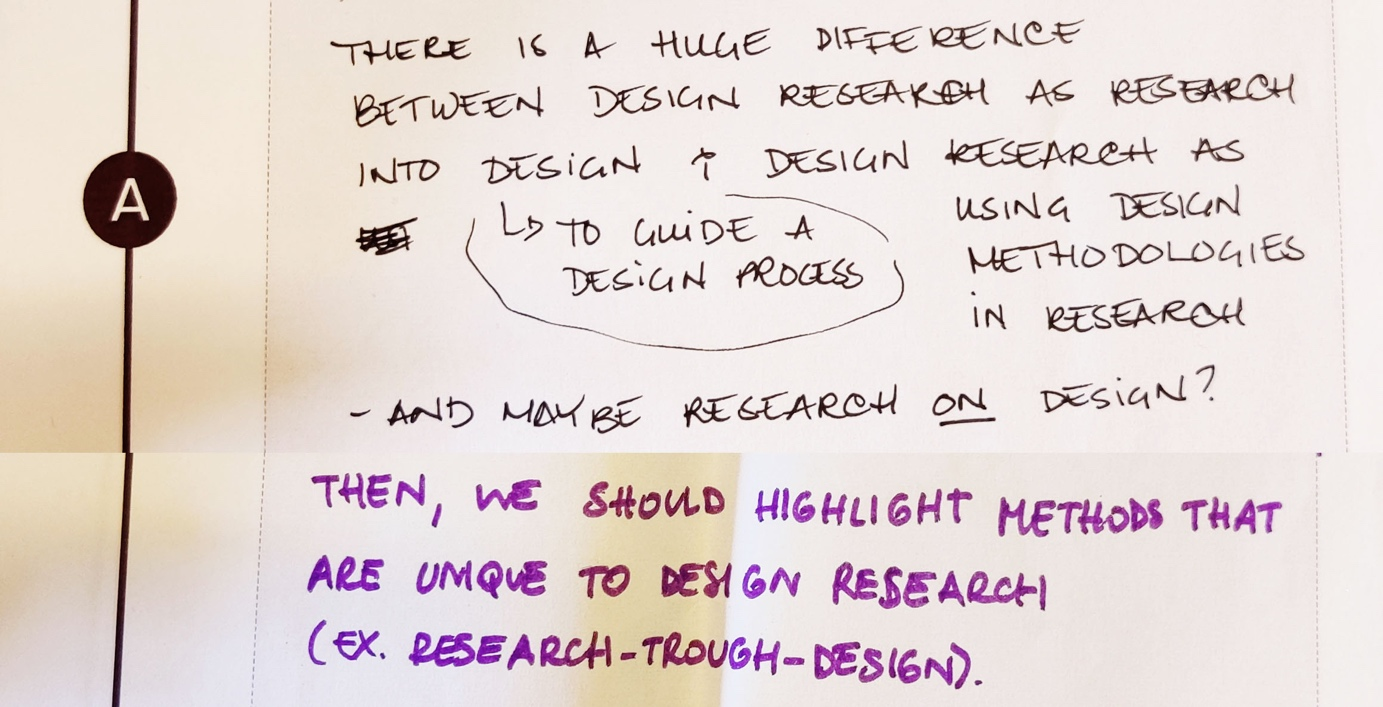 THERE IS A HUGE DIFFERENCE
BETWEEN DESIGN RESEARCH AS RESEARCH
INTO DESIGN & DESIGN RESEARCH AS
USING DESIGN
METHODOLOGIES
IN RESEARCH
↳ TO GUIDE A
DESIGN PROCESS
- AND MAYBE RESEARCH ON DESIGN?
A
THEN, WE SHOULD HIGHLIGHT METHODS THAT
ARE UNIQUE TO DESIGN RESEARCH
(EX. RESEARCH-TROUGH-DESIGN).